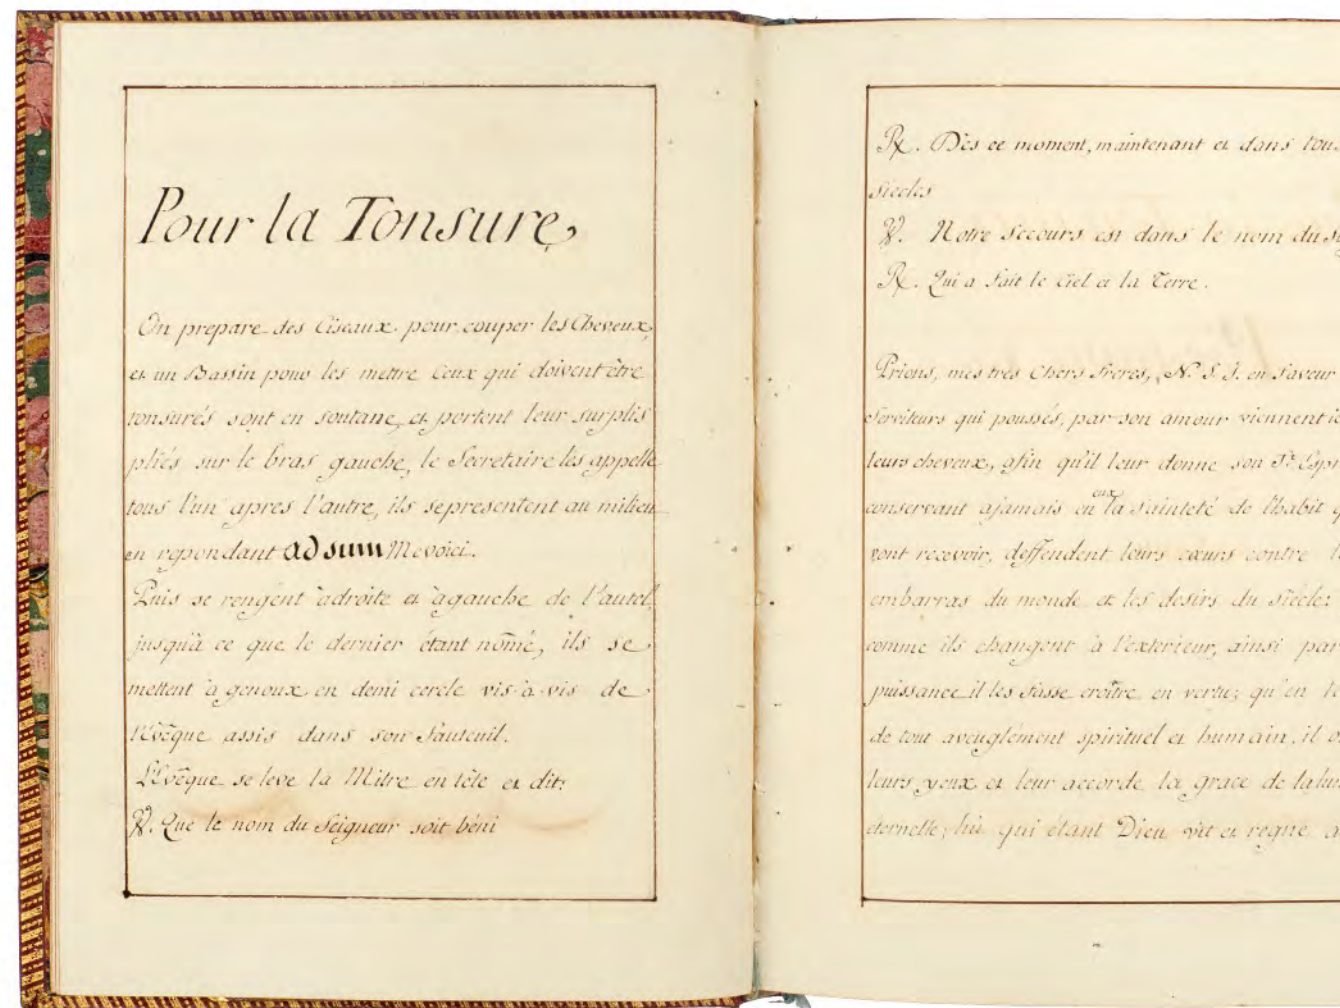 Pour la Tonsure,
On prepare des Ciseaux pour couper les Cheveux,
et un Bassin pour les mettre Ceux qui doivent être
tonsurés sont en soutane, et portent leur surplis
pliés sur le bras gauche, le Secretaire les appelle
tous l'un apres l'autre, ils se presentent au milieu
en repondant adsum Mevoici.
Puis se rengent àdroite et àgauche de l'autel,
jusqu'à ce que le dernier étant nom̃é, ils se
mettent à genoux en demi cercle vis-à-vis de
l'Evêque assis dans son fauteuil.
L'Evêque se leve la Mitre en tête et dit:
℣. Que le nom du Seigneur soit béni
℟. Dès ce moment, maintenant et dans tous
Siecles
℣. Notre Secours est dans le nom du
℟. Qui a fait le Ciel et la Terre.
Prions, mes très Chers freres, N. S. J. en faveur
Serviteurs qui poussés, par son amour viennent
leurs cheveux, afin qu'il leur donne son St. Espr
conservant ajamais en eux la sainteté de l'habit q
vont recevoir, deffendent leurs cœurs contre l
embarras du monde et les desirs du siécle:
comme ils changent à l'exterieur, ainsi par
puissance il les fasse croître en vertu; qu'en
de tout aveuglément spirituel et humain, il
leurs yeux et leur accorde la grace de lalum
eternelle; lui qui étant Dieu vit et regne a